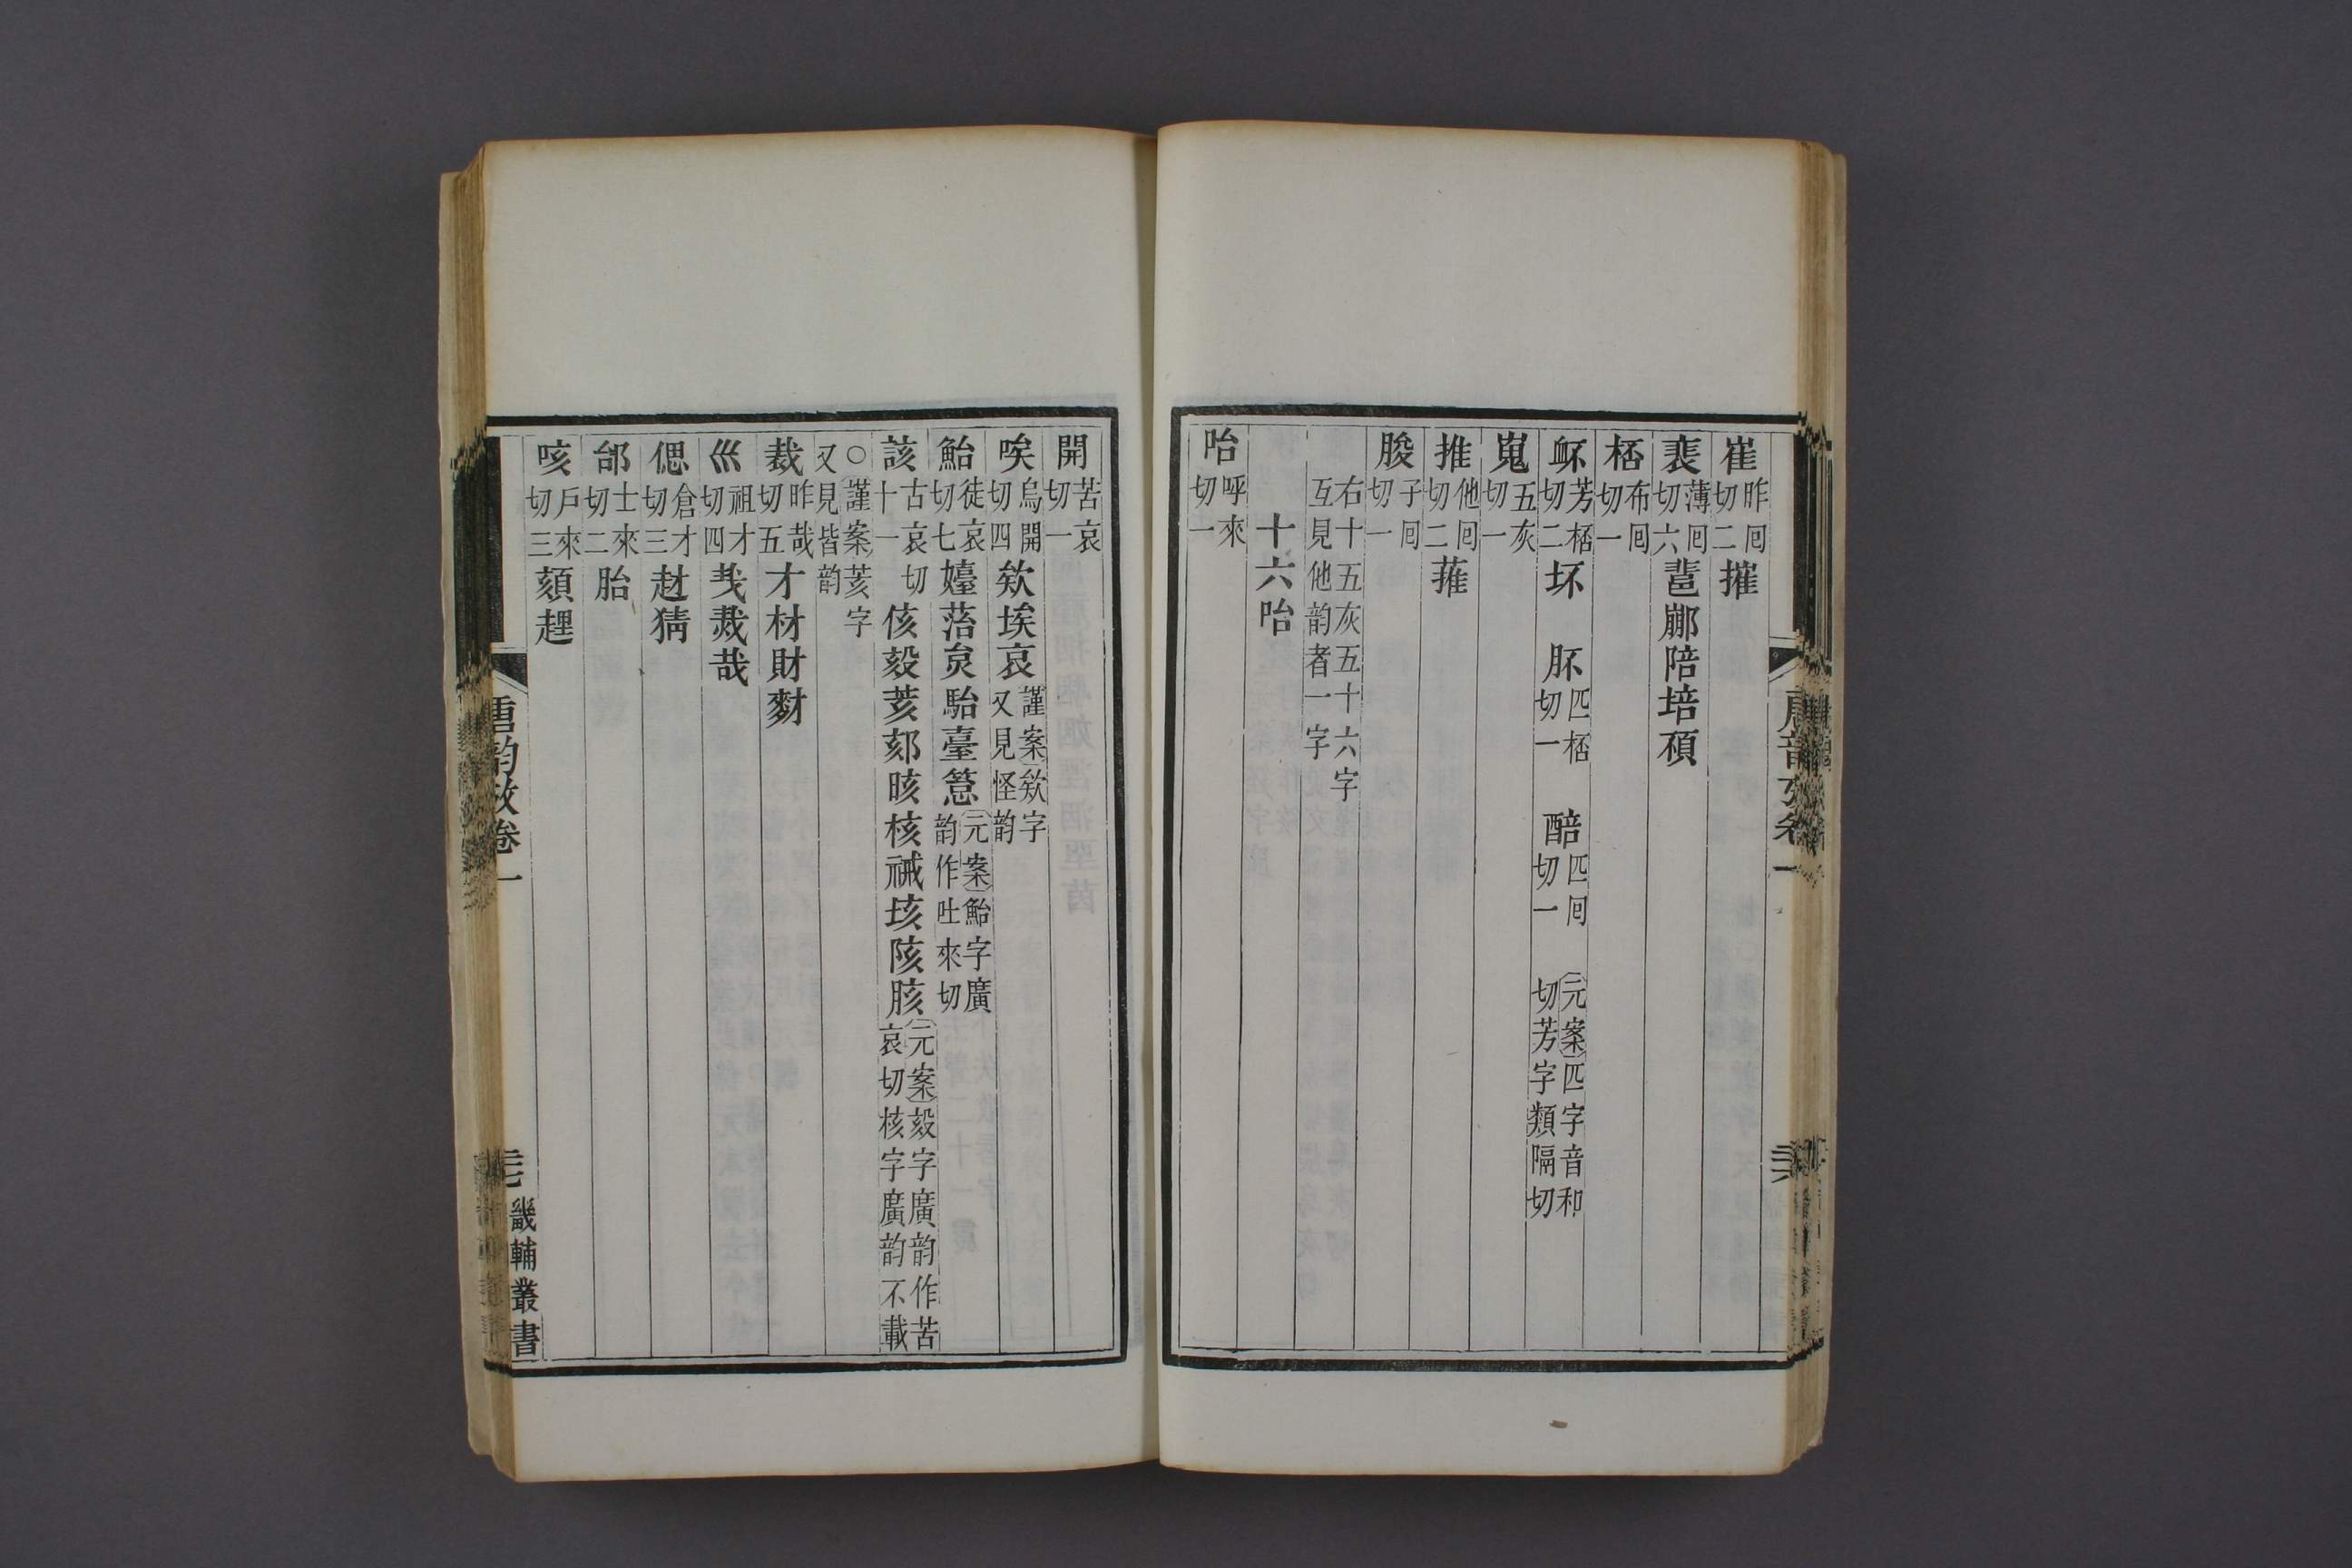 崔昨囘切二摧
裴薄囘切六䔒郮陪培碩
桮布囘切一
衃芳桮切二坏 肧匹桮切一 醅匹囘切一 元案匹字音和切芳字類隔切
嵬五灰切一
推他囘切二蓷
朘子囘切一
右十五灰五十六字互見他韵者一字
十六咍
咍呼來切一
唐韵攷卷一
開苦哀切一
唉烏開切四欸埃哀謹案欸字又見怪韵
鮐徒哀切七嬯菭炱駘臺箈元案鮐字廣韵作吐來切
該古哀切十一侅毅荄郂晐核祴垓陔胲元案毅字廣韵作苦哀切核字廣韵不載
○謹案荄字又見皆韵
裁昨哉切五才材財䴭
巛祖才切四㦲烖哉
偲倉才切三赼猜
邰士來切二胎
咳戶來切三頦䞨
唐韵攷卷一
畿輔叢書